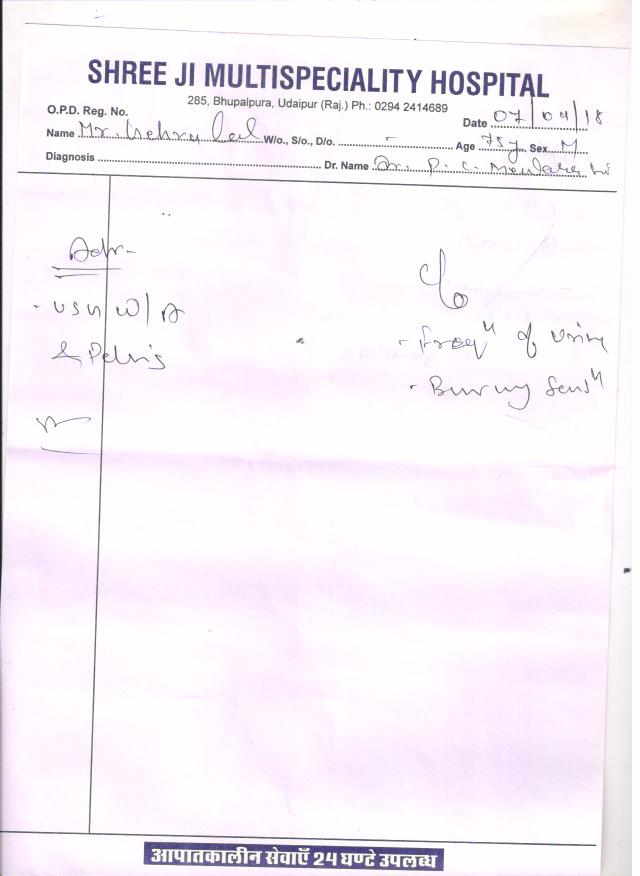 SHREE JI MULTISPECIALITY HOSPITAL
285, Bhupalpura, Udaipur (Raj.) Ph.: 0294 2414689
O.P.D. Reg. No.
Date 07/04/18
Name Mr. Nehru Lal W/o., S/o., D/o. - Age 75y Sex M
Diagnosis Dr. Name Dr. P. C.
Adv-
c/o
- USG W/A
& Pelvis
- Freqn of Urine
- Burning Sensn
आपातकालीन सेवाएँ 24 घण्टे उपलब्ध